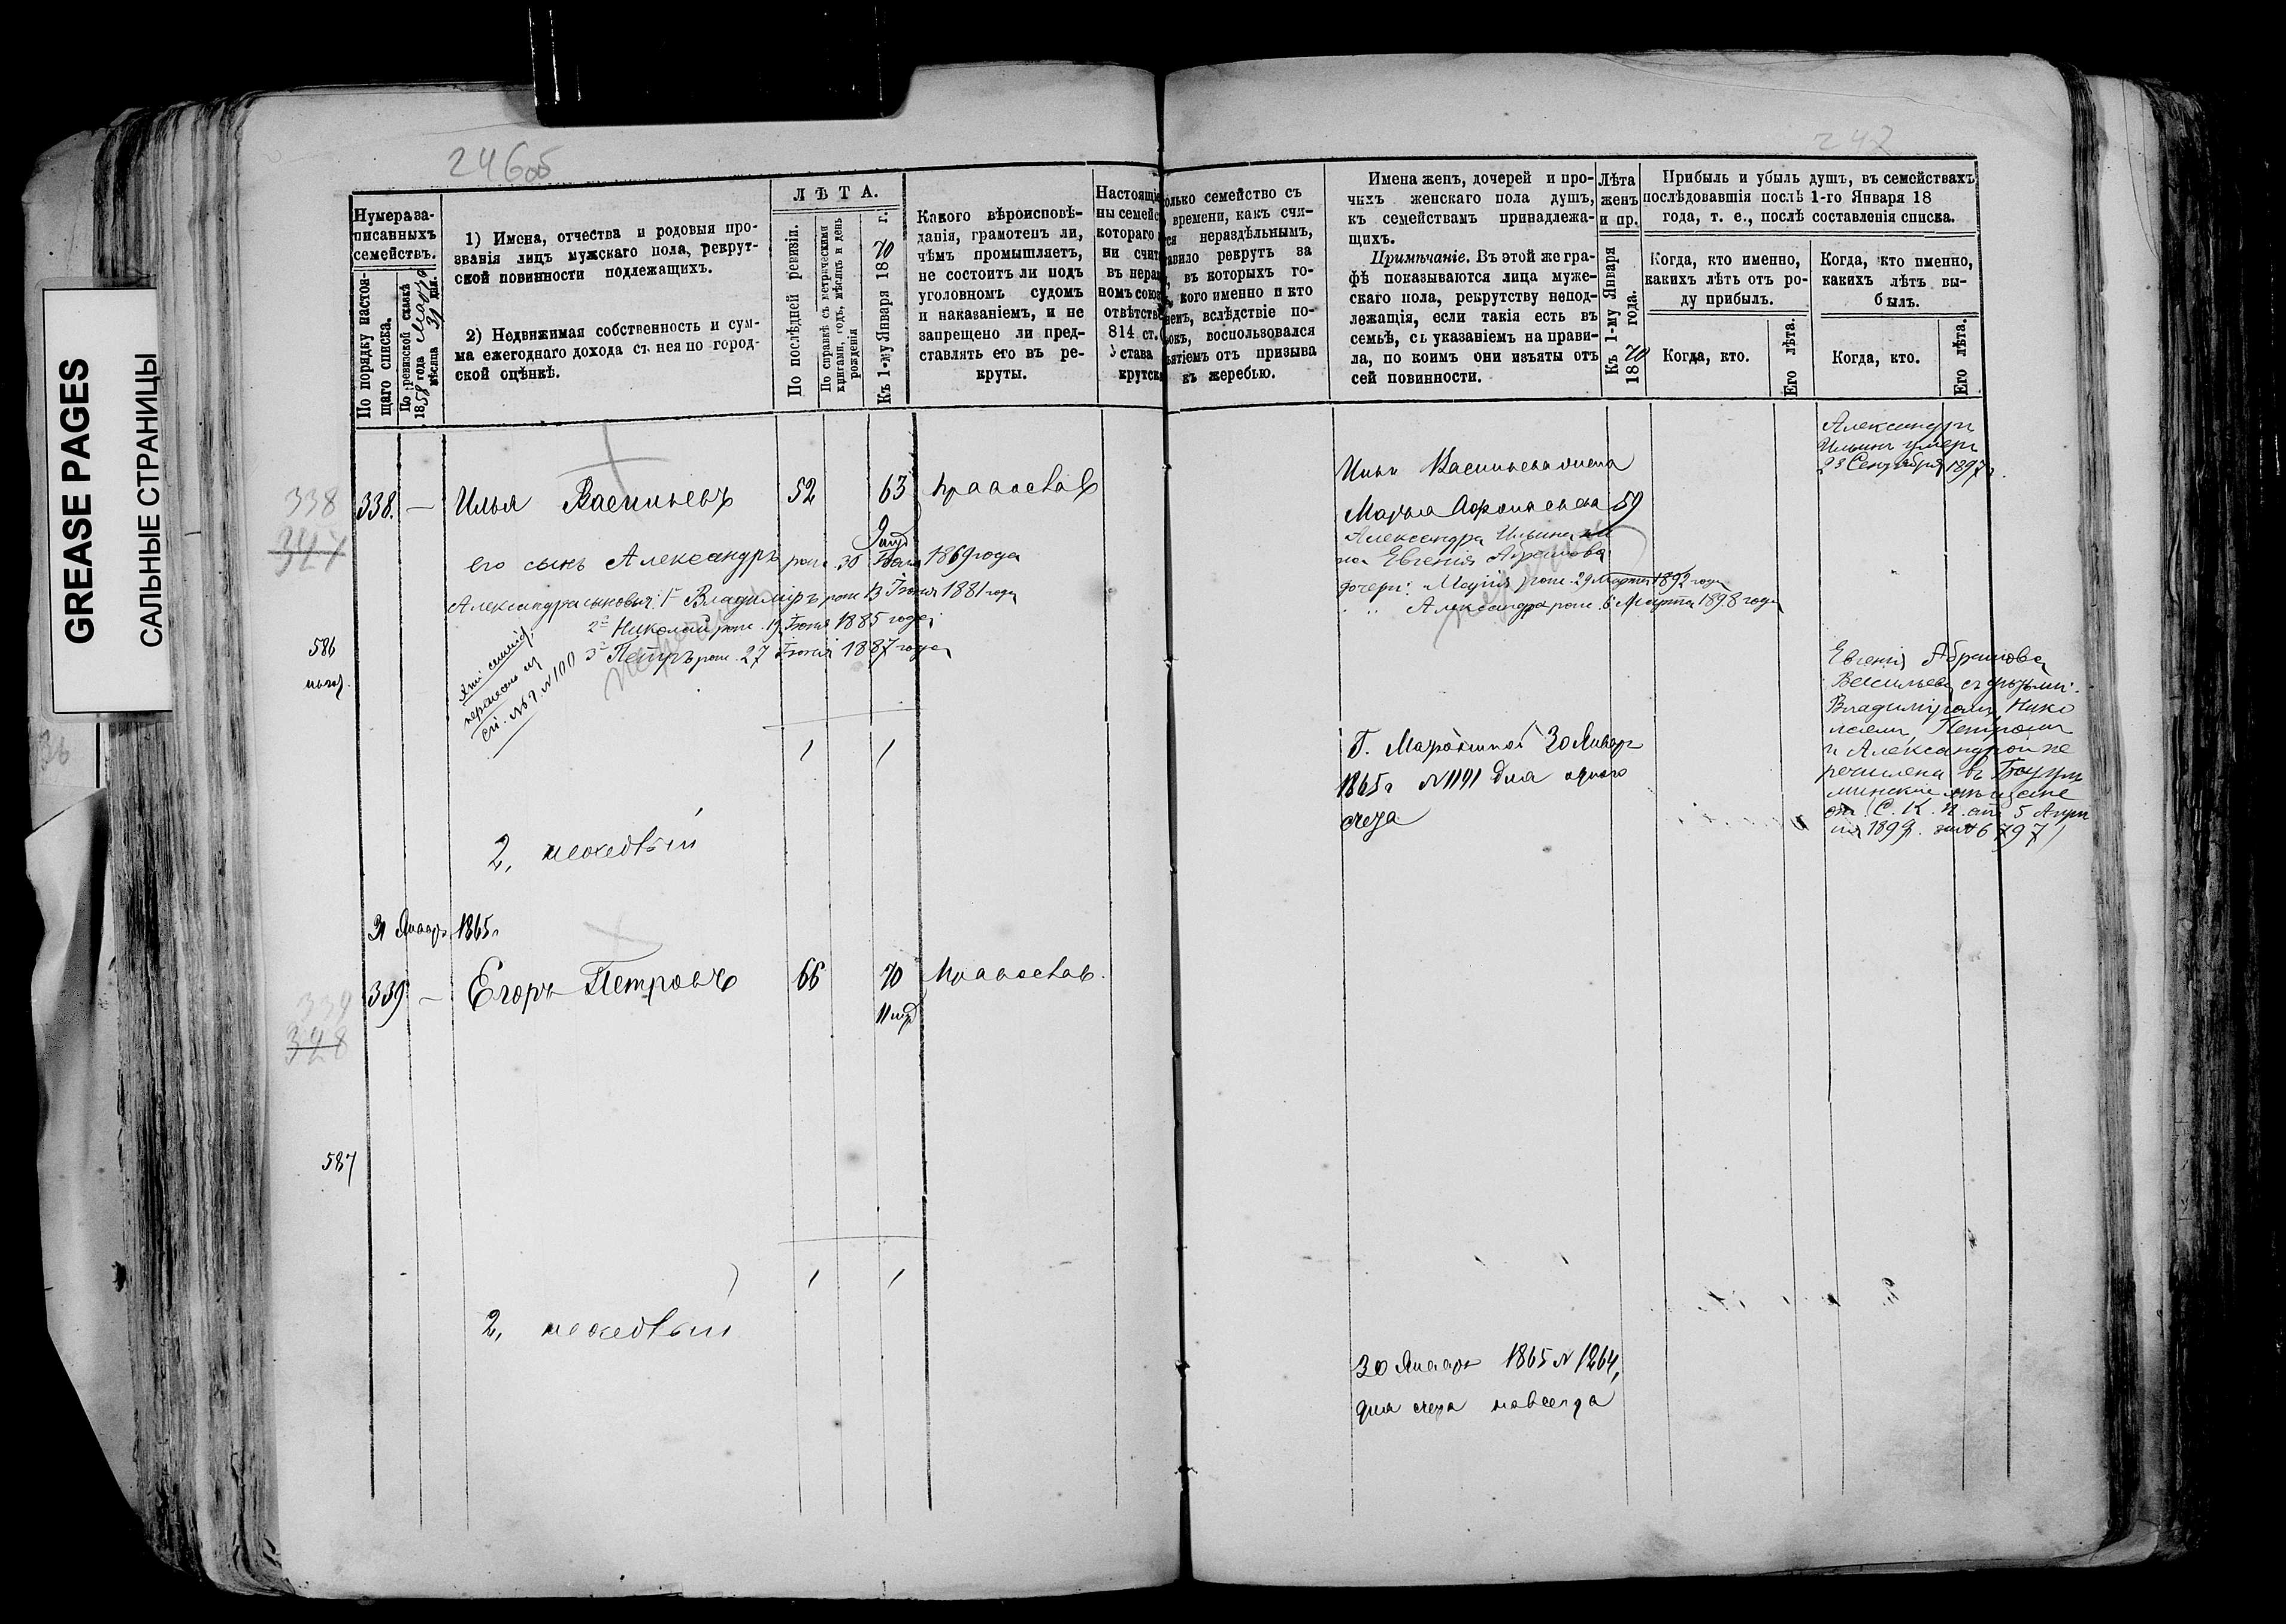 GREASE PAGES
САЛЬНЫЕ СТРАНИЦЫ
246об
247
Нумера за-
писанныхъ
семействъ.
По порядку настоя-
щаго списка.
По ревизской сказкѣ
1858 года Марта
мѣсяца 31 дня.
1) Имена, отчества и родовыя про-
званія лицъ мужскаго пола, рекрут-
ской повинности подлежащихъ.
2) Недвижимая собственность и сум-
ма ежегоднаго дохода съ нея по город-
ской оцѣнкѣ.
ЛѢТА.
По послѣдней ревизіи.
По справкѣ съ метрическими
книгами, годъ, мѣсяцъ и день
рожденія
Къ 1-му Января 1870 г.
Какого вѣроисповѣ-
данія, грамотенъ ли,
чѣмъ промышляетъ,
не состоитъ ли подъ
уголовномъ судомъ
и наказаніемъ, и не
запрещено ли пред-
ставлять его въ ре-
круты.
Настоящіе
ны семейс
котораго
ни счит
въ нераз
номъ союз
отвѣтстве
814 ст.
Устава
крутск
олько семейство съ
времени, какъ счи-
тся нераздѣльнымъ,
тавило рекрутъ за
, въ которыхъ го-
, кого именно и кто
нем, вслѣдствіе по-
ок, воспользовался
ятіемъ отъ призыва
къ жеребью.
Имена женъ, дочерей и про-
чихъ женскаго пола душъ,
къ семействамъ принадлежа-
щихъ.
Примѣчаніе. Въ этой же гра-
фѣ показываются лица муже-
скаго пола, рекрутству непод-
лежащія, если такія есть въ
семьѣ, съ указаніемъ на прави-
ла, по коимъ они изъяты отъ
сей повинности.
Лѣта
женъ
и пр.
Къ 1-му Января
1870 года.
Прибыль и убыль душъ, въ семействахъ
послѣдовавшія послѣ 1-го Января 18
года, т. е., послѣ составленія списка.
Когда, кто именно,
какихъ лѣтъ отъ ро-
ду прибылъ.
Когда, кто.
Его лѣта.
Когда, кто именно,
какихъ лѣтъ вы-
былъ.
Когда, кто.
Его лѣта.
338
347
338. — Илья Васильевъ 52 63 Православ
его сынъ Александръ рож. 30 1869 года
Александра сыновья: 1й Владиміръ рож 13 Іюня 1881 года
2й Николай рож. 19 Іюня 1885 года
3й Петръ рож. 27 Іюня 1887 года
перенесен
№ 100
586
1 1
2,
Ильи Васильева жена
Марья 59
Александра Ильина
на Евгенія Абрамова
дочери: Марія рож. 29 Марта 1892 года
" Александра рож. 6 Марта 1898 года
Г. 30 Январ
1865г № 1191 для одного
Александръ
Ильинъ умеръ
23 Сентября 1897 г.
Евгенія Абрамова
Васильева съ дѣтьми:
Владиміромъ, Нико
лаемъ, Петромъ
и Александрой пе
речислена въ Бугуль
минские мѣщане
С. К. П. отъ 5 Апрѣ
ля 1899 г. за № 6797
31 Январ 1865г
339
328
339 — Егоръ Петровъ 66 70 Православ.
587
1 1
2,
30 Январ 1865 № 1264,
для навсегда